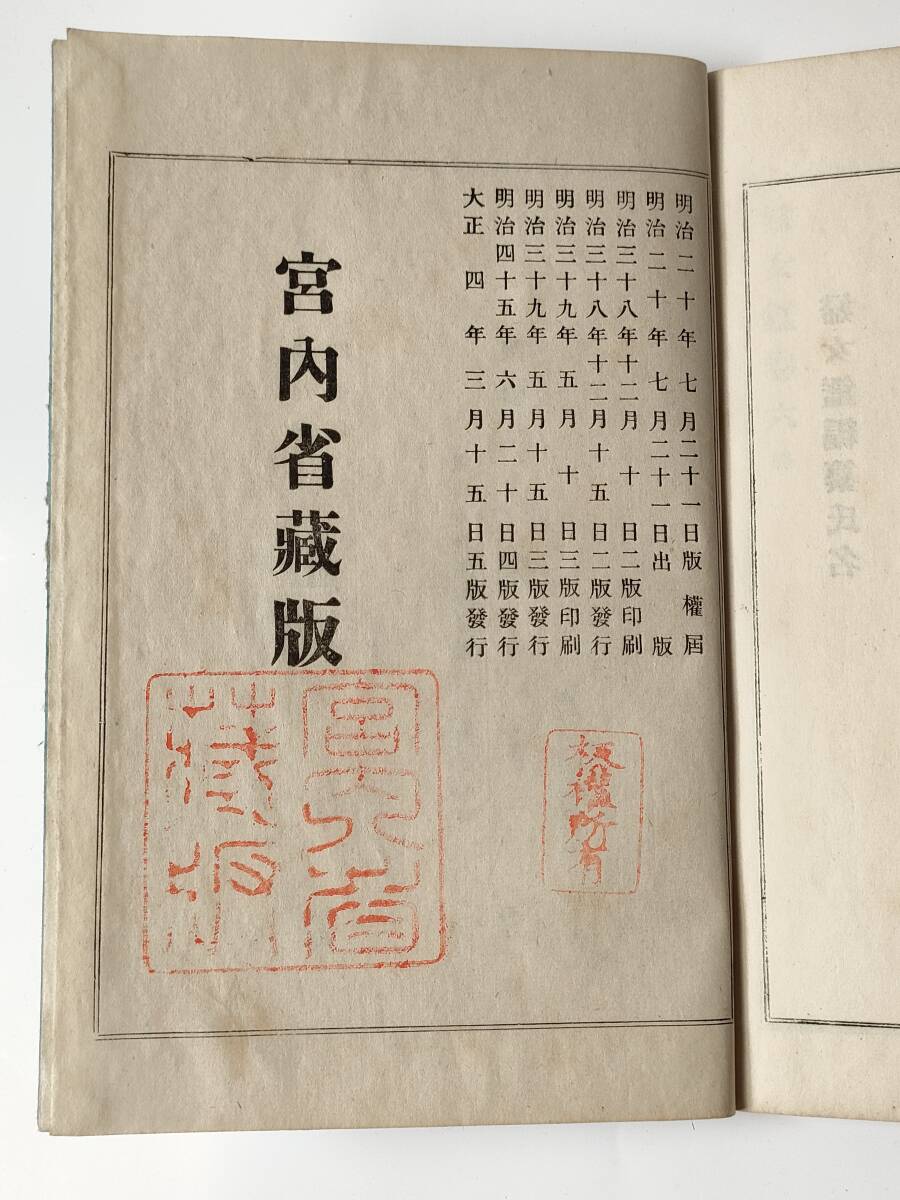 明治二十年七月二十一日版權屆
明治二十年七月二十一日出版
明治三十八年十二月十日二版印刷
明治三十八年十二月十五日二版發行
明治三十九年五月十日三版印刷
明治三十九年五月十五日三版發行
明治四十五年六月二十日四版發行
大正四年三月十五日五版發行
宮內省藏版
版權所有
宮內省
藏版